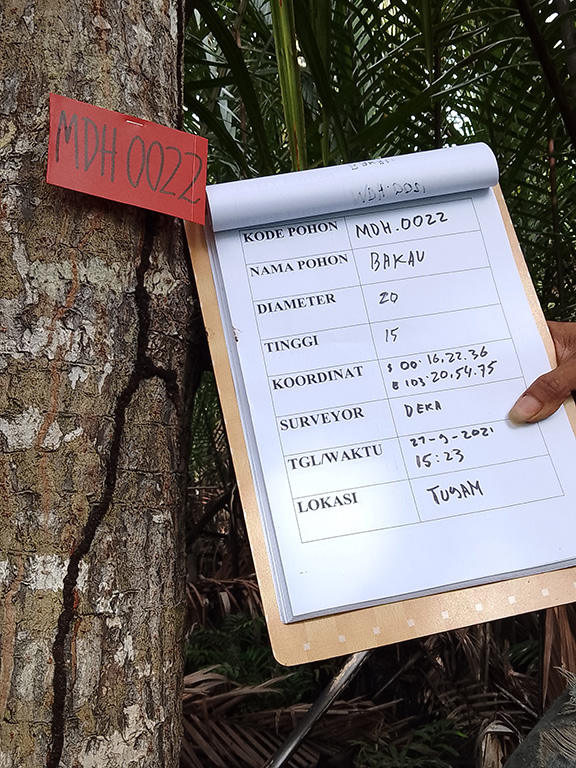 MDH 0022
KODE POHON MDH.0022
NAMA POHON BAKAU
DIAMETER 20
TINGGI 15
KOORDINAT S 00.16.22.36
E 103.20.54.75
SURVEYOR DEKA
TGL/WAKTU 27-9-2021
15:23
LOKASI TUGAM